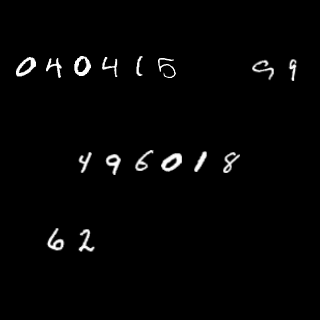 040415 99
496018
62